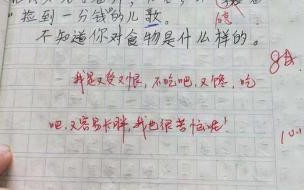 "捡到一分钱"的儿歌。
不知道你对食物是什么样的。
我是又爱又恨,不吃吧,又馋,吃
吧,又容易长胖,我也很苦恼呢!